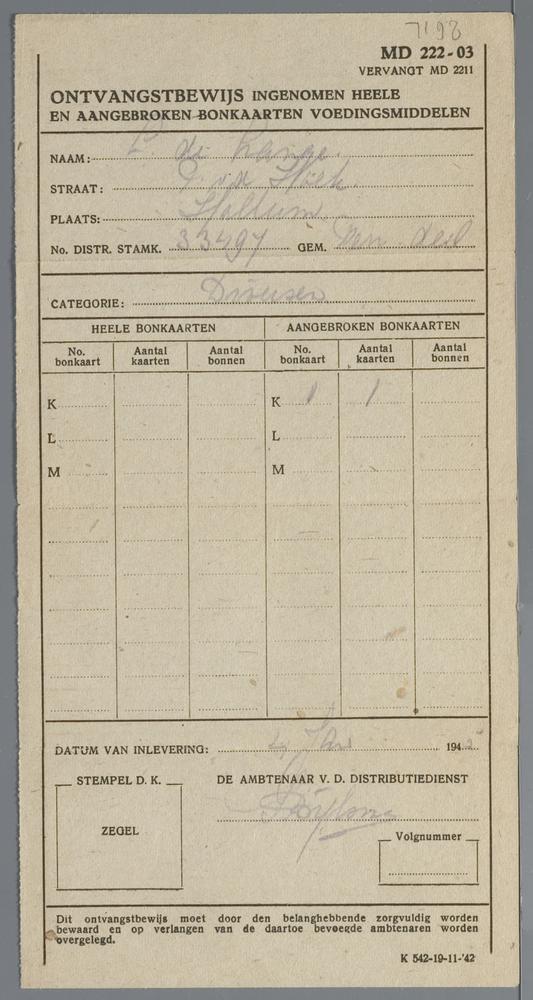 7198
MD 222-03
VERVANGT MD 2211
ONTVANGSTBEWIJS INGENOMEN HEELE
EN AANGEBROKEN BONKAARTEN VOEDINGSMIDDELEN
NAAM: de Lange
STRAAT:
PLAATS:
No. DISTR. STAMK. 33497 GEM.
CATEGORIE: Diversen
HEELE BONKAARTEN AANGEBROKEN BONKAARTEN
No. bonkaart Aantal kaarten Aantal bonnen No. bonkaart Aantal kaarten Aantal bonnen
K K 1 1
L L
M M
DATUM VAN INLEVERING: Jan 194
STEMPEL D. K. DE AMBTENAAR V. D. DISTRIBUTIEDIENST
ZEGEL
Volgnummer
Dit ontvangstbewijs moet door den belanghebbende zorgvuldig worden
bewaard en op verlangen van de daartoe bevoegde ambtenaren worden
overgelegd.
K 542-19-11-'42